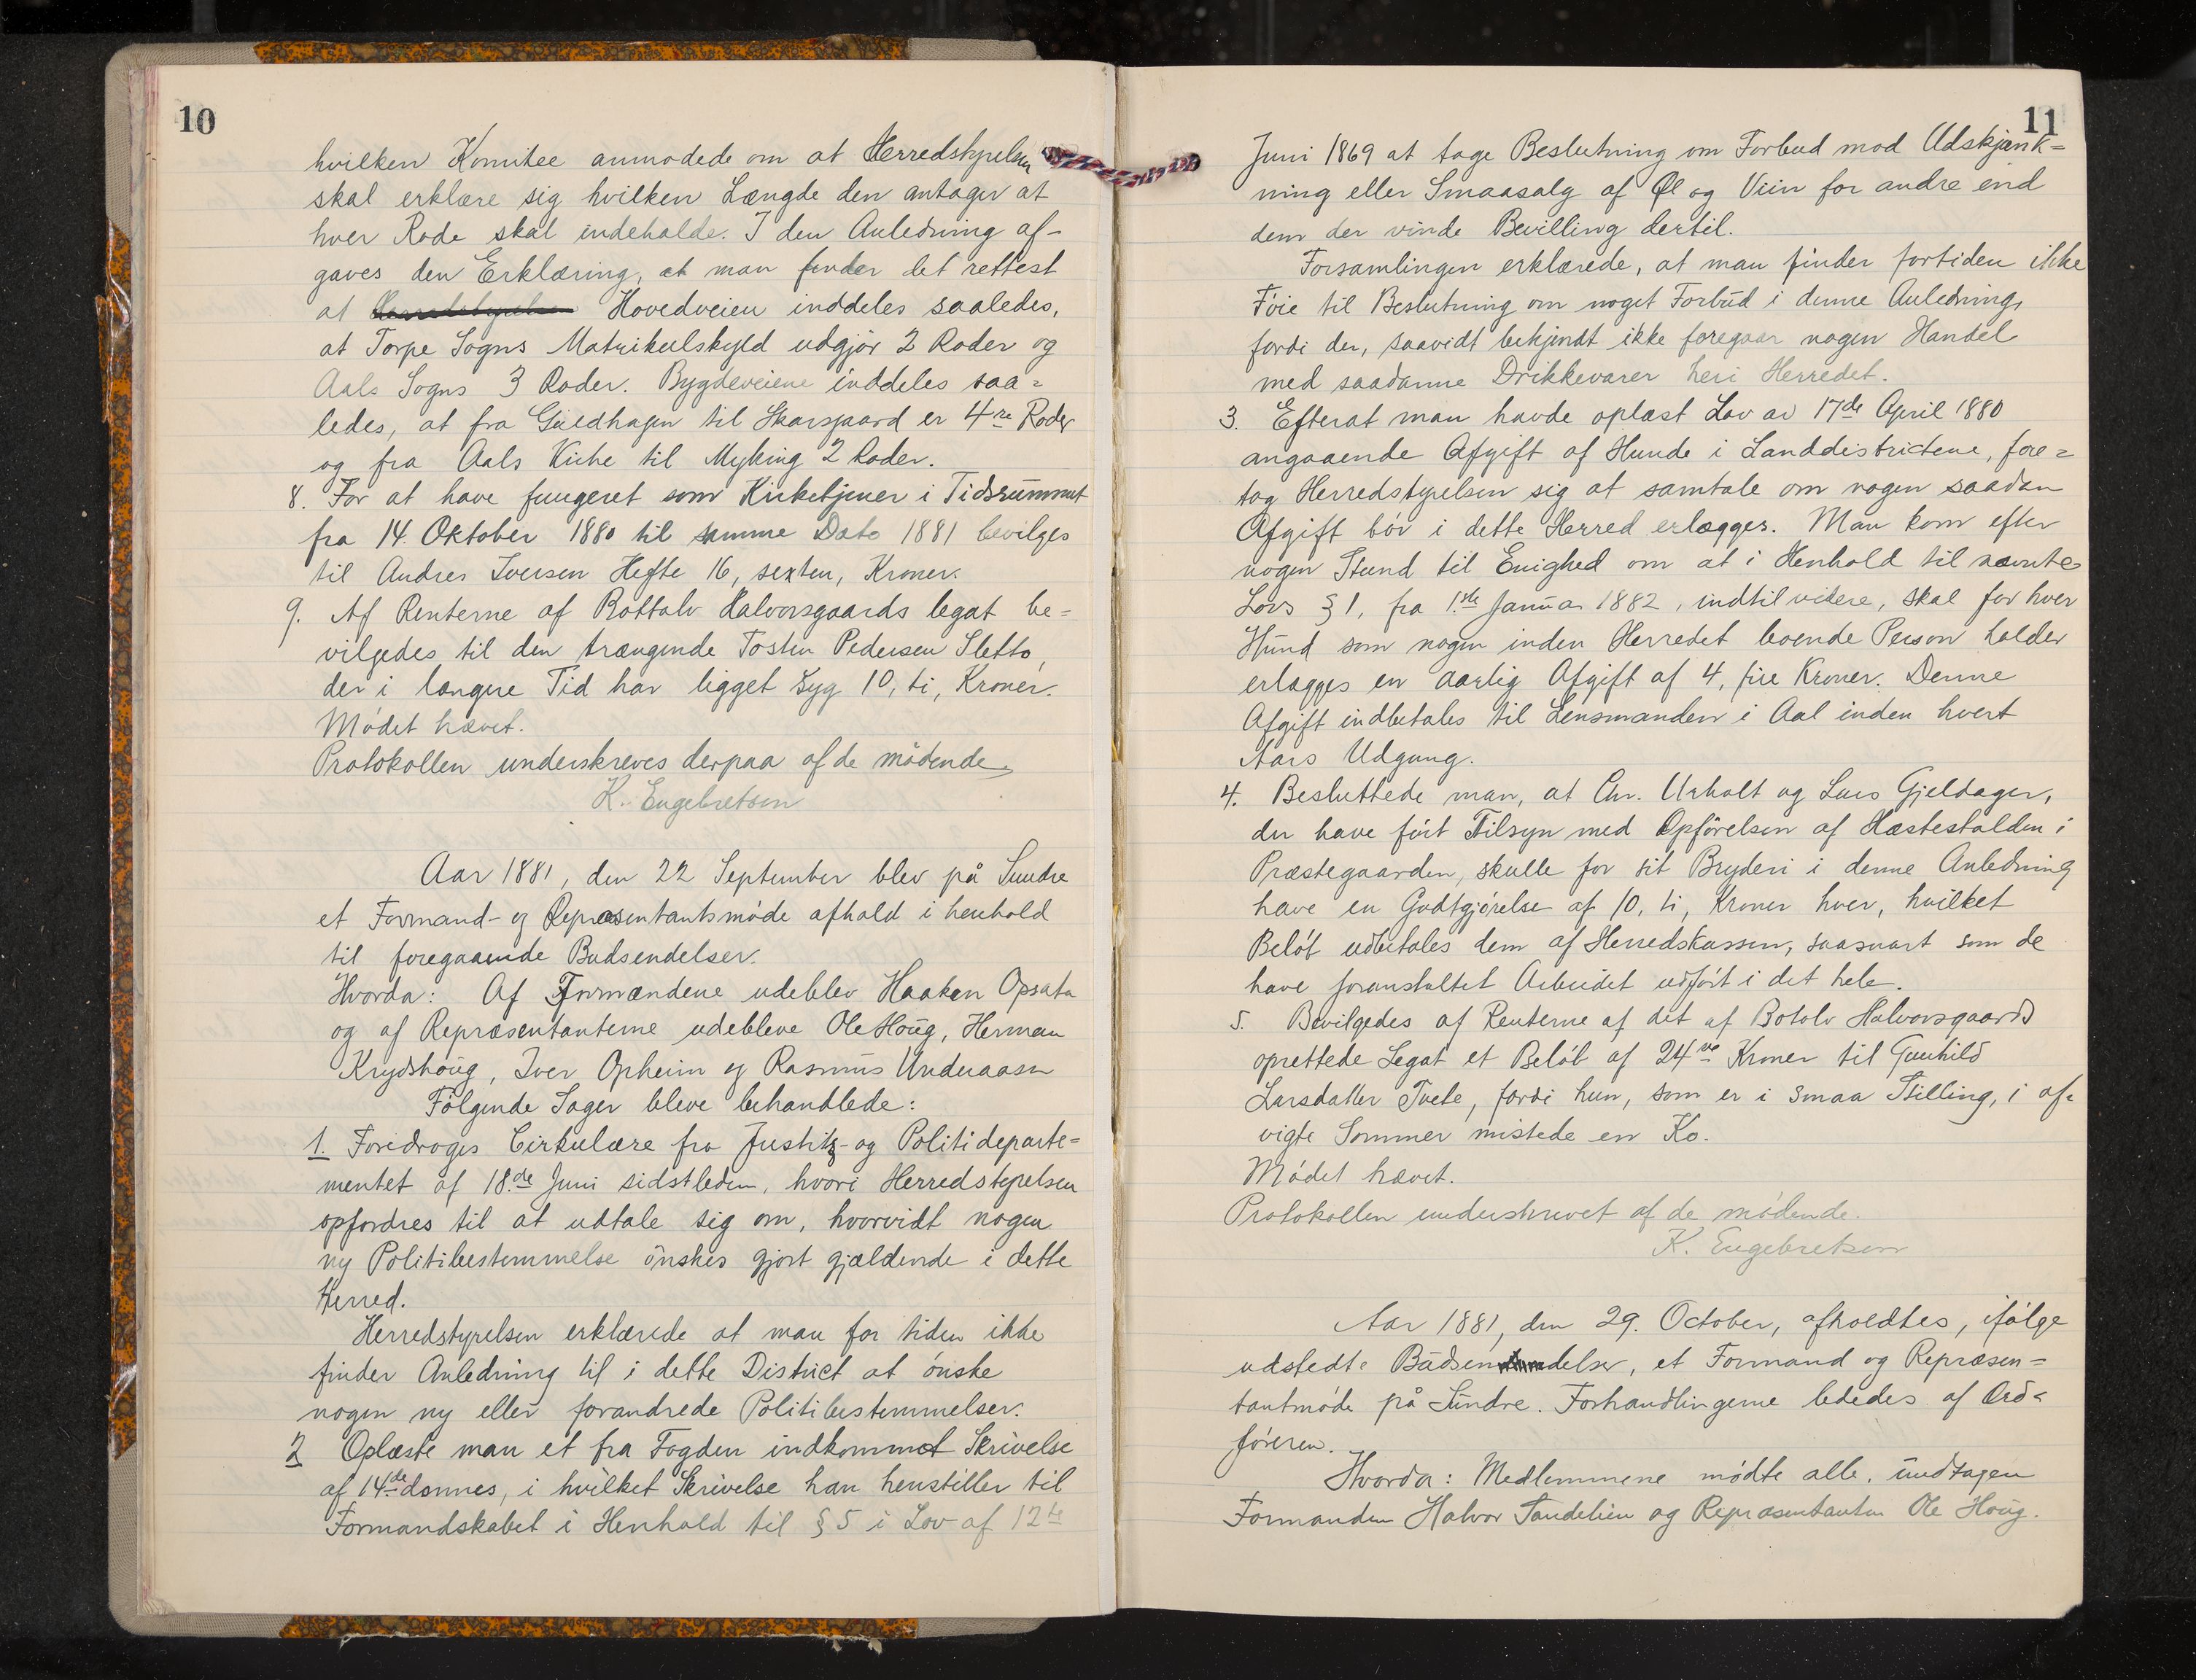 10
hvilken Komitee anmodede om at Herredstyrelsen
skal erklære sig hvilken Længde den antager at
hver Rode skal indeholde. I den Anledning af-
gaves den Erklæring, at man finder det rettest
at Hovedveien inddeles saaledes,
at Torpe Sogns Matrikulskyld udgjør 2 Roder og
Aals Sogns 3 Roder. Bygdeveiene inddeles saa=
ledes, at fra Guldhagen til Skarsgaard er 4re Roder
og fra Aals Kirke til Myking 2 Roder.
8. For at have fungeret som Kirketjener i Tidsrummet
fra 14. Oktober 1880 til samme Dato 1881 bevilges
til Andres Iversen Hefte 16, sexten, Kroner.
9. Af Renterne af Bottolv Halvorsgaards legat be=
vilgedes til den trængende Tosten Pedersen Sletto,
der i længre Tid har ligget syg 10, ti, Kroner.
Mødet hævet.
Protokollen underskreves derpaa af de mødende.
K. Engebretsen
Aar 1881, den 22 September blev på Sundre
et Formand- og Repræsentantsmøde afhold i henhold
til foregaaende Budsendelser.
Hvorda: Af Formændene udeblev Haaken Opsata
og af Repræsentanterne udebleve Ole Houg, Herman
Krydshoug, Iver Opheim og Rasmus Underaasen
Følgende Sager bleve behandlede:
1. Foredroges Cirkulære fra Justitz- og Politideparte=
mentet af 18.de Juni sidstleden, hvori Herredstyrelsen
opfordres til at udtale sig om, hvorvidt nogen
ny Politibestemmelse ønskes gjort gjældende i dette
Herred.
Herredstyrelsen erklærede at man for tiden ikke
finder Anledning til i dette District at ønske
nogen ny eller forandrede Politibestemmelser.
2 Oplæste man et fra Fogden indkommet Skrivelse
af 14de dennes, i hvilket Skrivelse han henstiller til
Formandskabet i Henhold til § 5 i Lov af 12te
11
Juni 1869 at tage Beslutning om Forbud mod Udskjænk=
ning eller Smaasalg af Øl og Viin for andre end
dem der vinde Bevilling dertil.
Forsamlingen erklærede, at man finder fortiden ikke
Føie til Beslutning om noget Forbud i denne Anledning,
fordi der, saavidt bekjendt ikke foregaar nogen Handel
med saadanne Drikkevarer heri Herredet.
3. Efterat man havde oplæst Lov av 17de April 1880
angaaende Afgift af Hunde i Landdistrictene, fore=
tog Herredstyrelsen sig at samtale om nogen saadan
Afgift bør i dette Herred erlægges. Man kom efter
nogen Stund til Enighed om at i Henhold til nævnte
Lovs § 1, fra 1.ste Januar 1882, indtil videre, skal for hver
Hund som nogen inden Herredet boende Person holder
erlægges en aarlig Afgift af 4, fire Kroner. Denne
Afgift indbetales til Lensmanden i Aal inden hvert
Aars Udgang.
4. Besluttede man, at Chr. Urholt og Lars Gjeldager,
der have ført Tilsyn med Opførelsen af Hæstestalden i
Præstegaarden, skulle for sit Bryderi i denne Anledning
have en Godtgjørelse af 10, ti, Kroner hver, hvilket
Beløb udbetales dem af Herredskassen, saasnart som de
have foranstaltet Arbeidet udført i det hele.
5. Bevilgedes af Renterne af det af Botolv Halvorsgaard
oprettede Legat et Beløb af 24re Kroner til Gunhild
Larsdatter Tvete, fordi hun, som er i smaa Stilling, i af=
vigte Sommer mistede en Ko.
Mødet hævet.
Protokollen underskrevet af de mødende.
K. Engebretsen
Aar 1881, den 29. October, afholdtes, ifølge
udstedte Budsendelser, et Formand og Repræsen=
tantmøde på Sundre. Forhandlingerne lededes af Ord=
føreren.
Hvorda: Medlemmene mødte alle, undtagen
Formanden Halvor Sandelien og Repræsentanten Ole Houg.